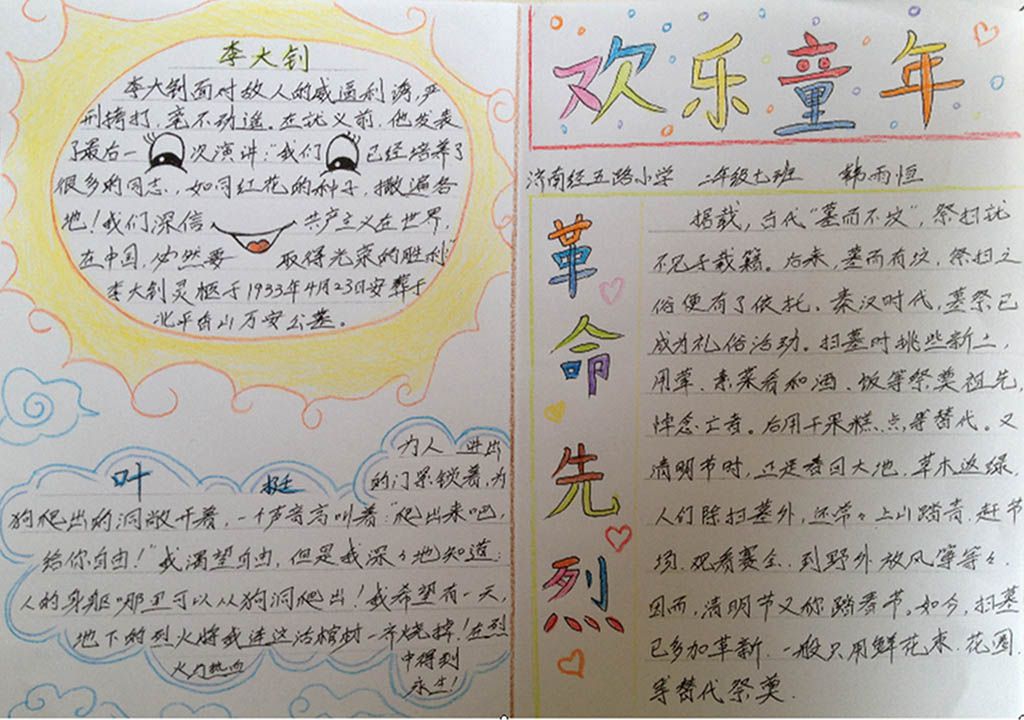 李大钊
李大钊面对敌人的威逼利诱,严
刑拷打,毫不动遥。在就义前,他发表
了最后一次演讲:“我们已经培养了
很多的同志,如同红花的种子,撒遍各
地!我们深信共产主义在世界,
在中国,必然要取得光荣的胜利”
李大钊灵柩于1933年4月23日安葬于
北平香山万安公墓。
叶挺
为人进出
的门紧锁着,为
狗爬出的洞敞开着,一个声音高叫着:“爬出来吧,
给你自由!”我渴望自由,但是我深々地知道:
人的身躯哪里可以从狗洞爬出!我希望有一天,
地下的烈火将我连这活棺材一齐烧掉!在烈
火与热血
中得到
永生!
欢乐童年
济南经五路小学 二年级七班 韩雨恒
革命先烈
据载,古代“墓而不坟”,祭扫就
不见于载籍。后来,墓而有坟,祭扫之
俗便有了依托。秦汉时代,墓祭已
成为礼俗活动。扫墓时挑些新土,
用荤、素菜肴和酒、饭等祭奠祖先,
悼念亡者。后用干果糕点等替代。又
清明节时,正是春回大地,草木返绿,
人们除扫墓外,还常々上山踏青,赶节
场,观看赛会,到野外放风筝等々,
因而,清明节又称踏春节。如今,扫墓
已多加革新,一般只用鲜花束、花圈
等替代祭奠.